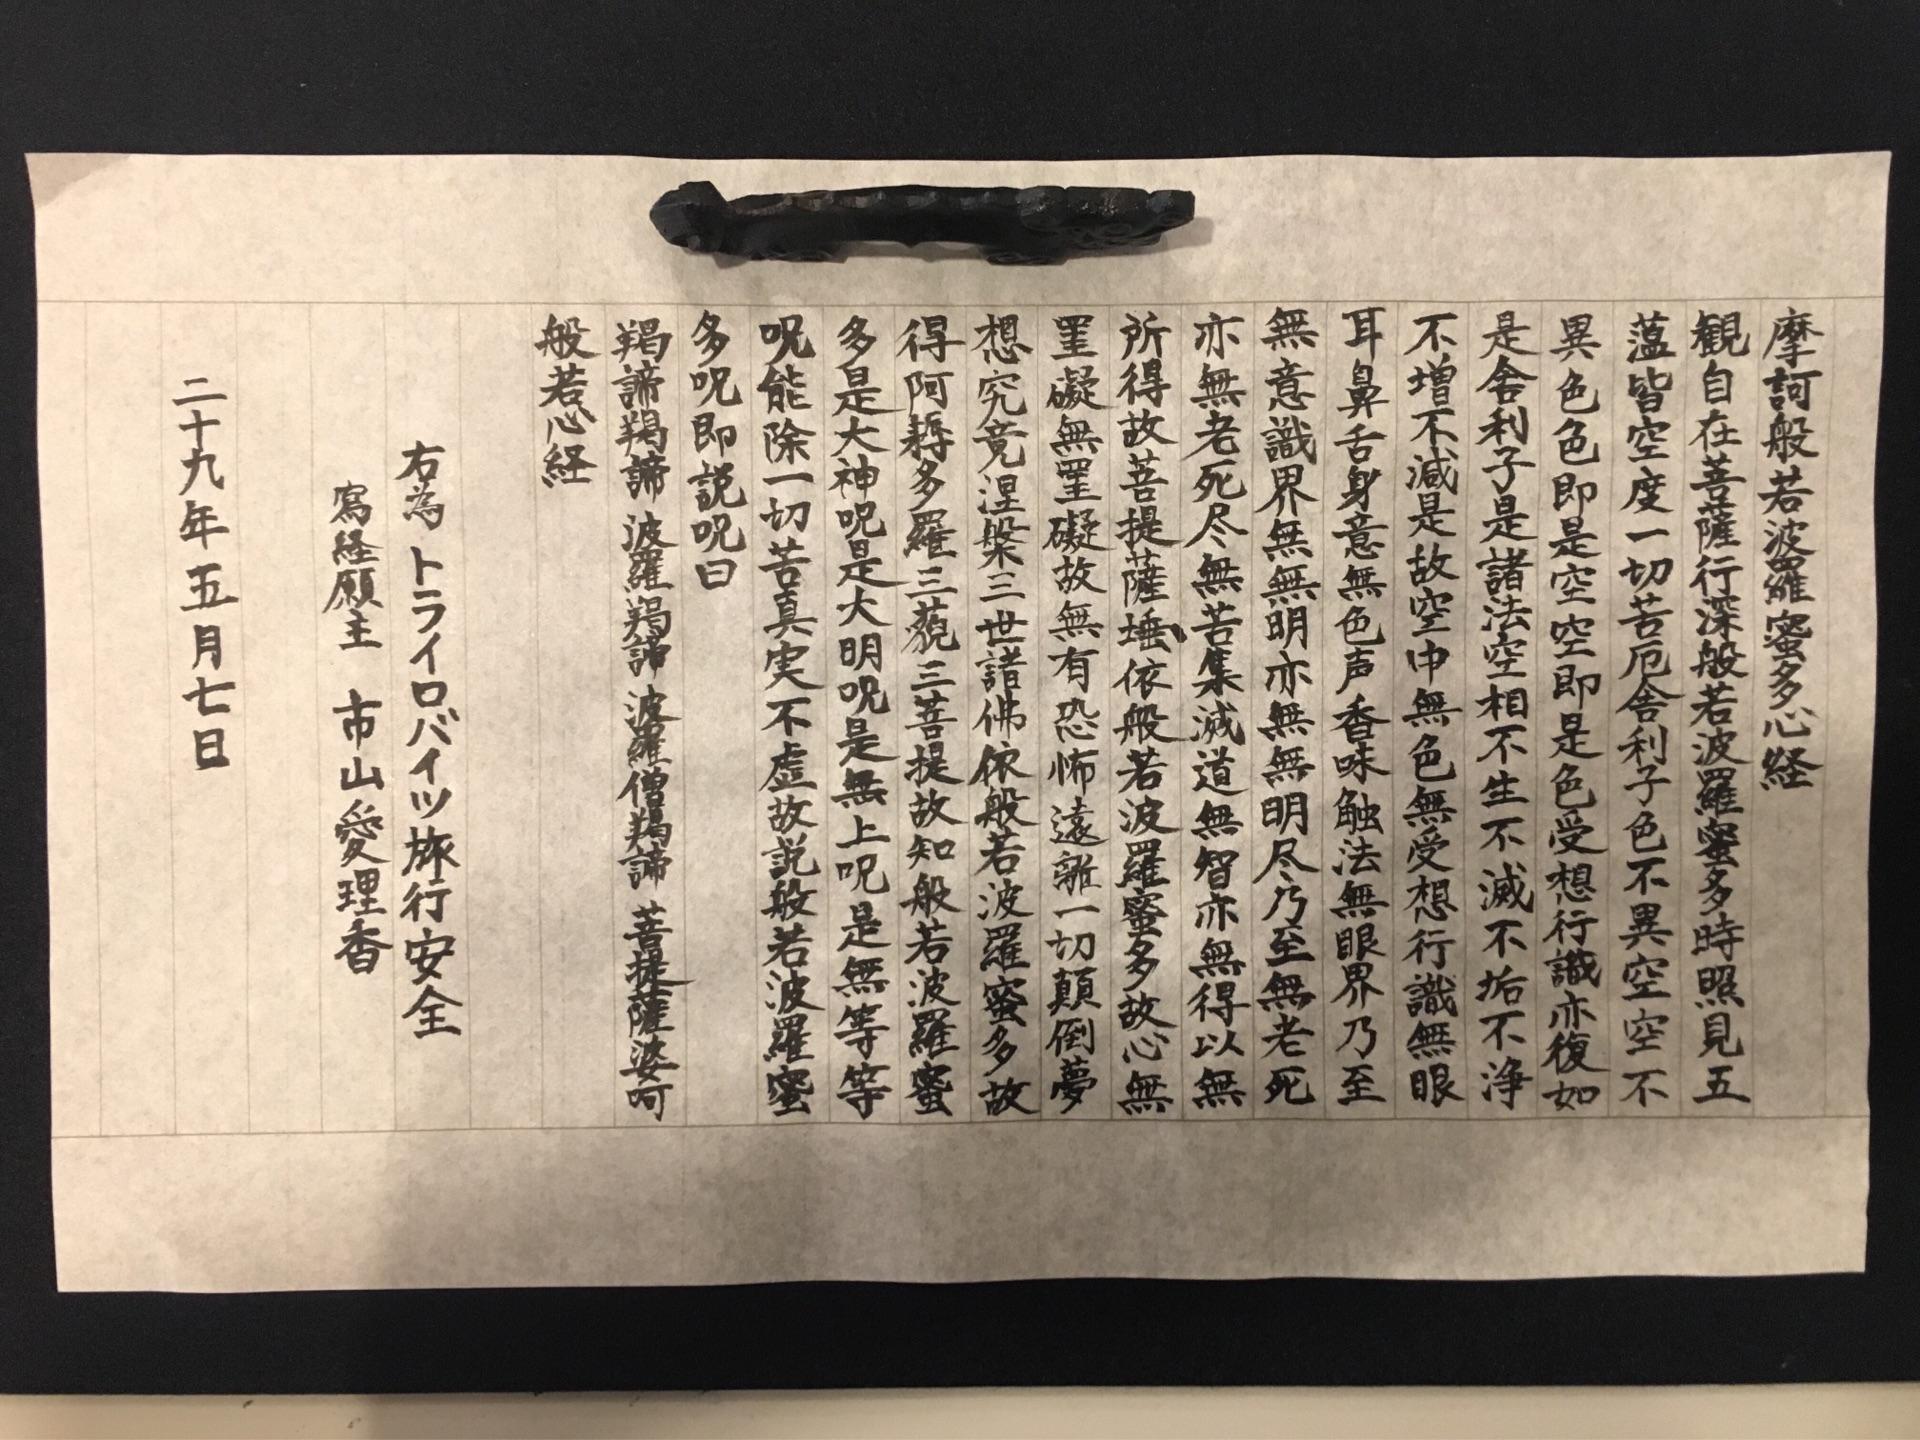 摩訶般若波羅蜜多心経
観自在菩薩行深般若波羅蜜多時照見五
薀皆空度一切苦厄舎利子色不異空空不
異色色即是空空即是色受想行識亦復如
是舎利子是諸法空相不生不滅不垢不浄
不増不減是故空中無色無受想行識無眼
耳鼻舌身意無色声香味触法無眼界乃至
無意識界無無明亦無無明尽乃至無老死
亦無老死尽無苦集滅道無智亦無得以無
所得故菩提薩埵依般若波羅蜜多故心無
罣礙無罣礙故無有恐怖遠離一切顛倒夢
想究竟涅槃三世諸佛依般若波羅蜜多故
得阿耨多羅三藐三菩提故知般若波羅蜜
多是大神呪是大明呪是無上呪是無等等
呪能除一切苦真実不虚故説般若波羅蜜
多呪即説呪曰
羯諦羯諦 波羅羯諦 波羅僧羯諦 菩提薩婆呵
般若心経
右為 トライロバイツ旅行安全
寫経願主 市山愛理香
二十九年五月七日